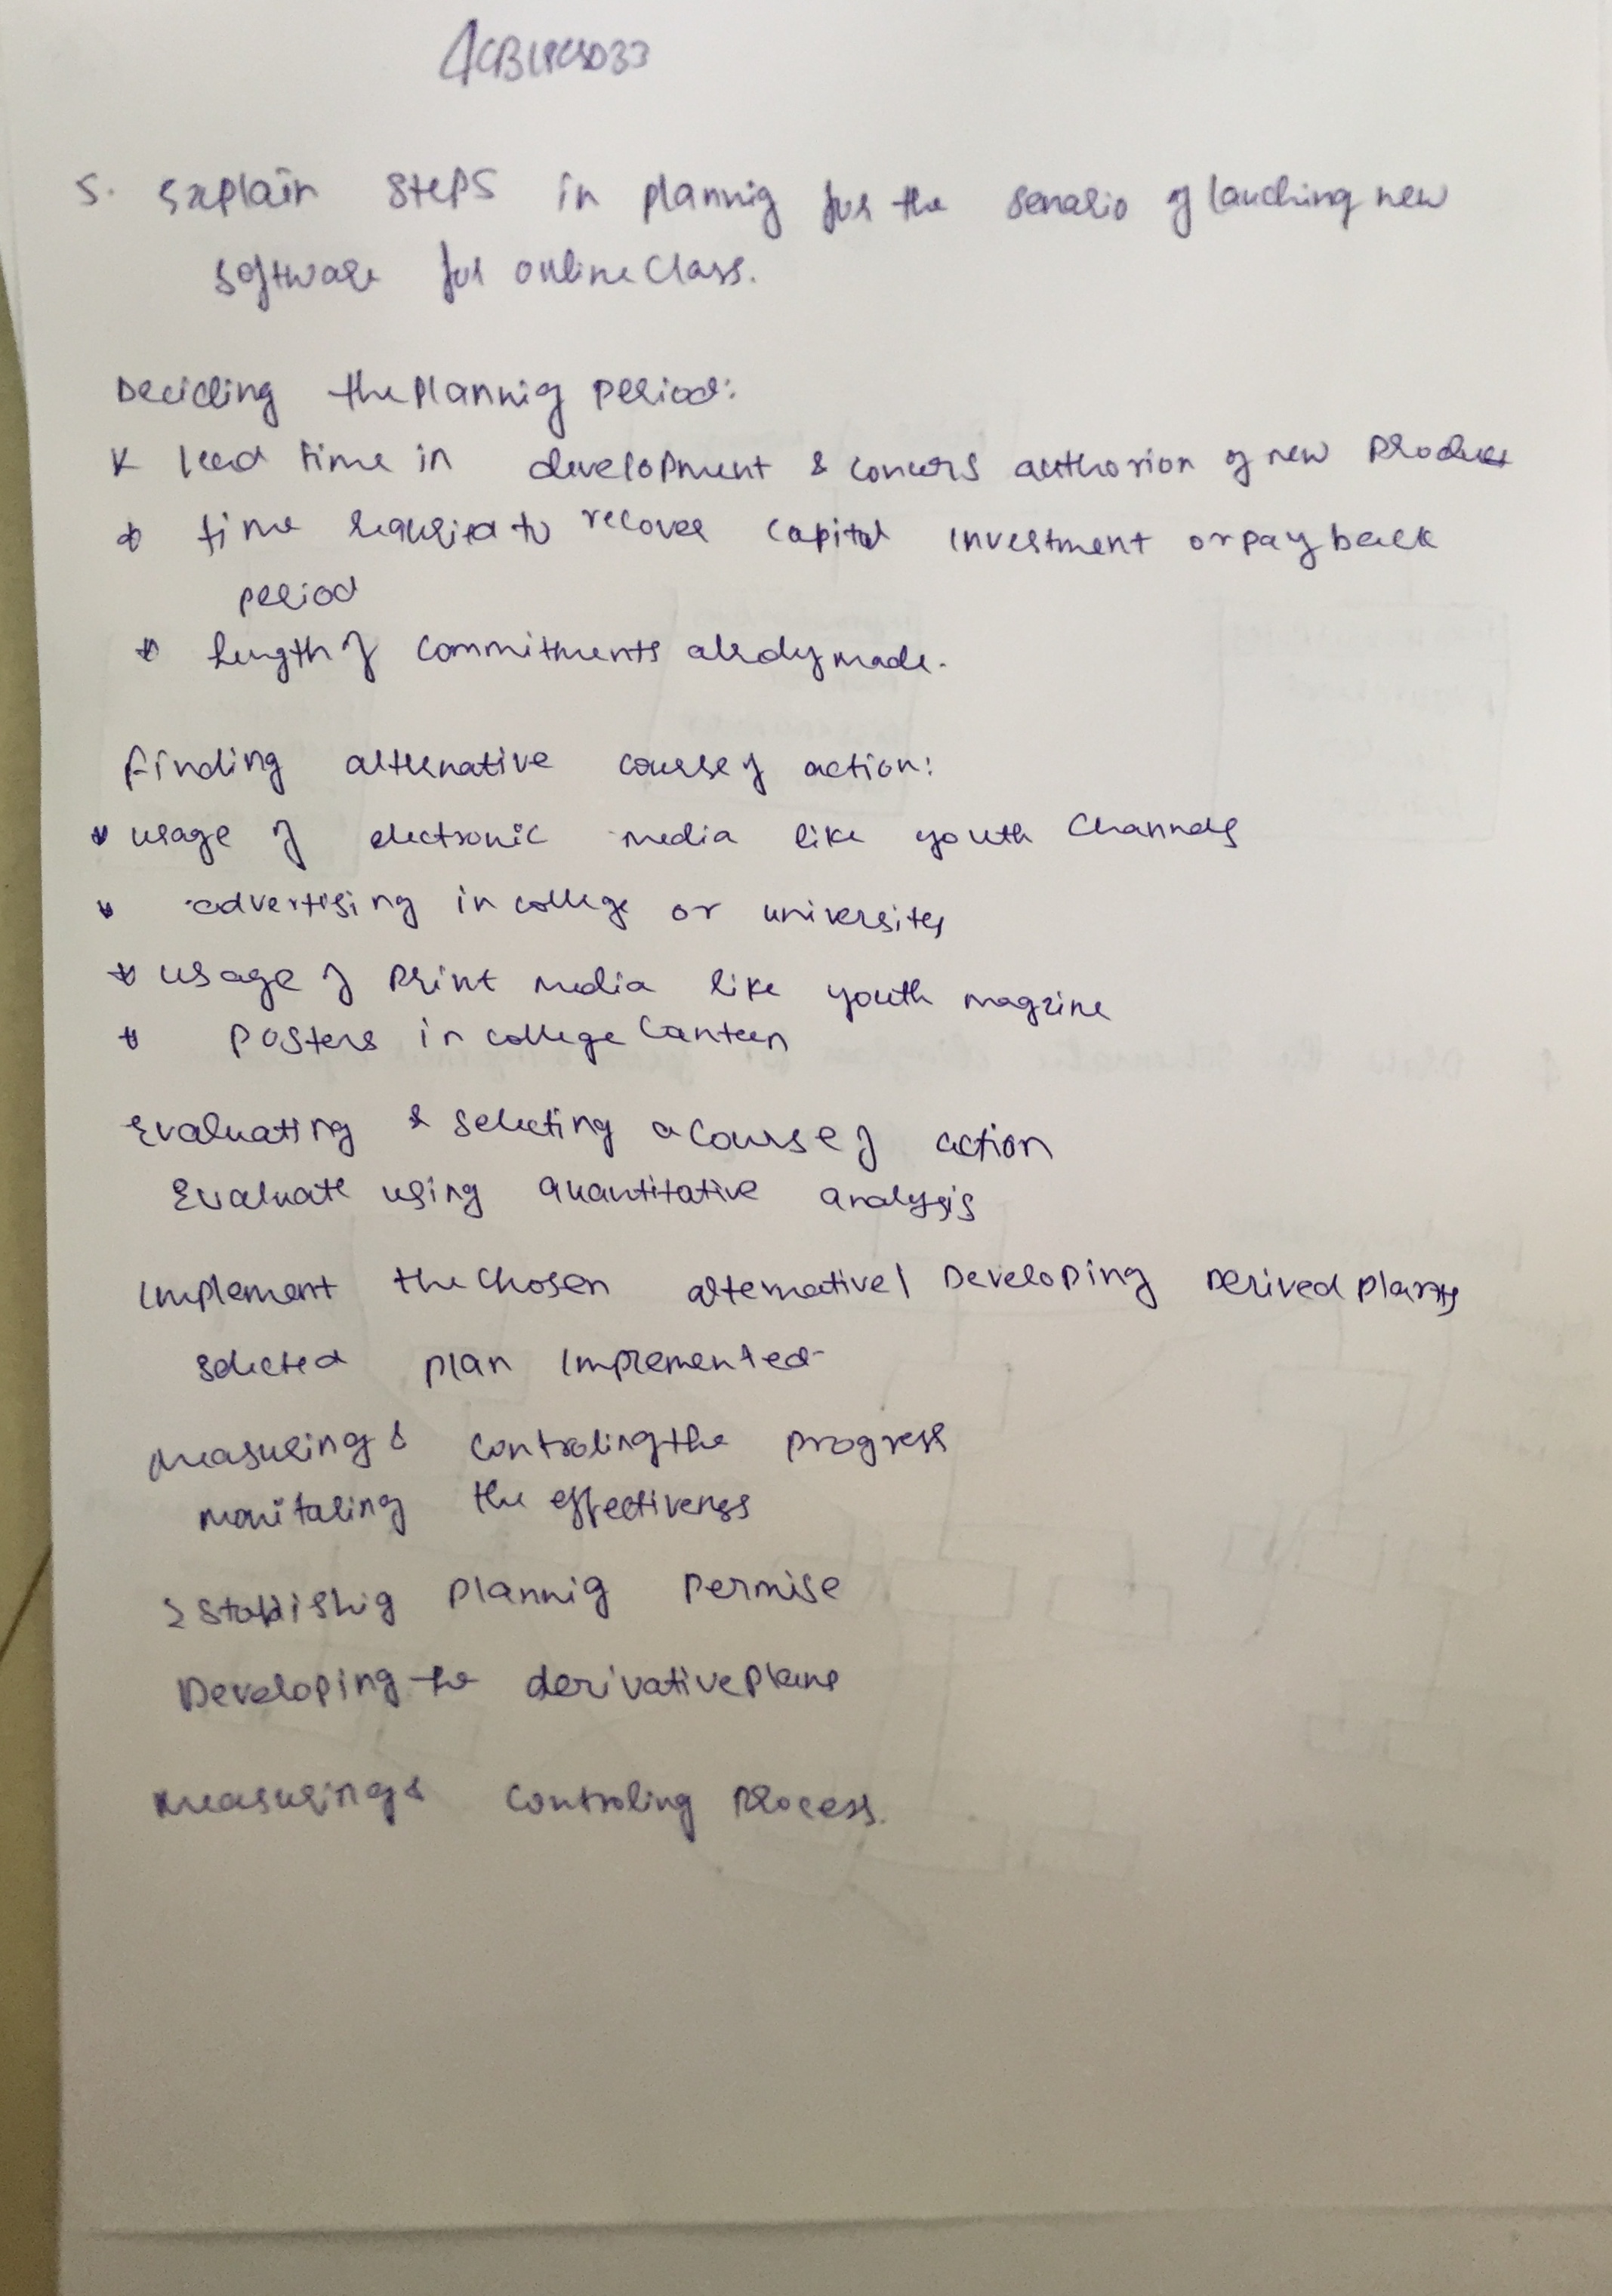 5. Explain steps in plannig for the senario of lauching new
software for online class.
Deciding the plannig period:
* lead time in development & of new product
* time required to recover capital investment or pay back
period
* length of commitments alrdy made.
finding alternative course of action:
* usage of electronic media like youth channels
* advertising in college or university
* usage of print media like youth magzine
* posters in college canteen
Evaluating & selecting a course of action
Evaluate using quantitative analysis
Implement the chosen alternative / Developing Derived
selected plan implemented
measuring & controling the progress
monitaring the effectiveness
Establishig plannig permise
Developing the derivative plans
measuring & controling process.